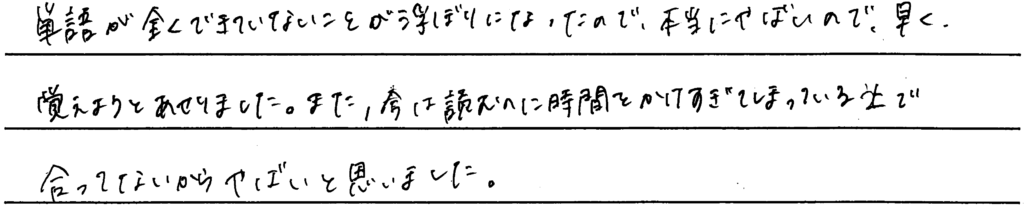 単語が全くできていないことがう浮ぼりになったので、本当にやばいので、早く
覚えようとあせりました。また、今は読むのに時間をかけすぎてしまっている上で
合ってないからやばいと思いました。